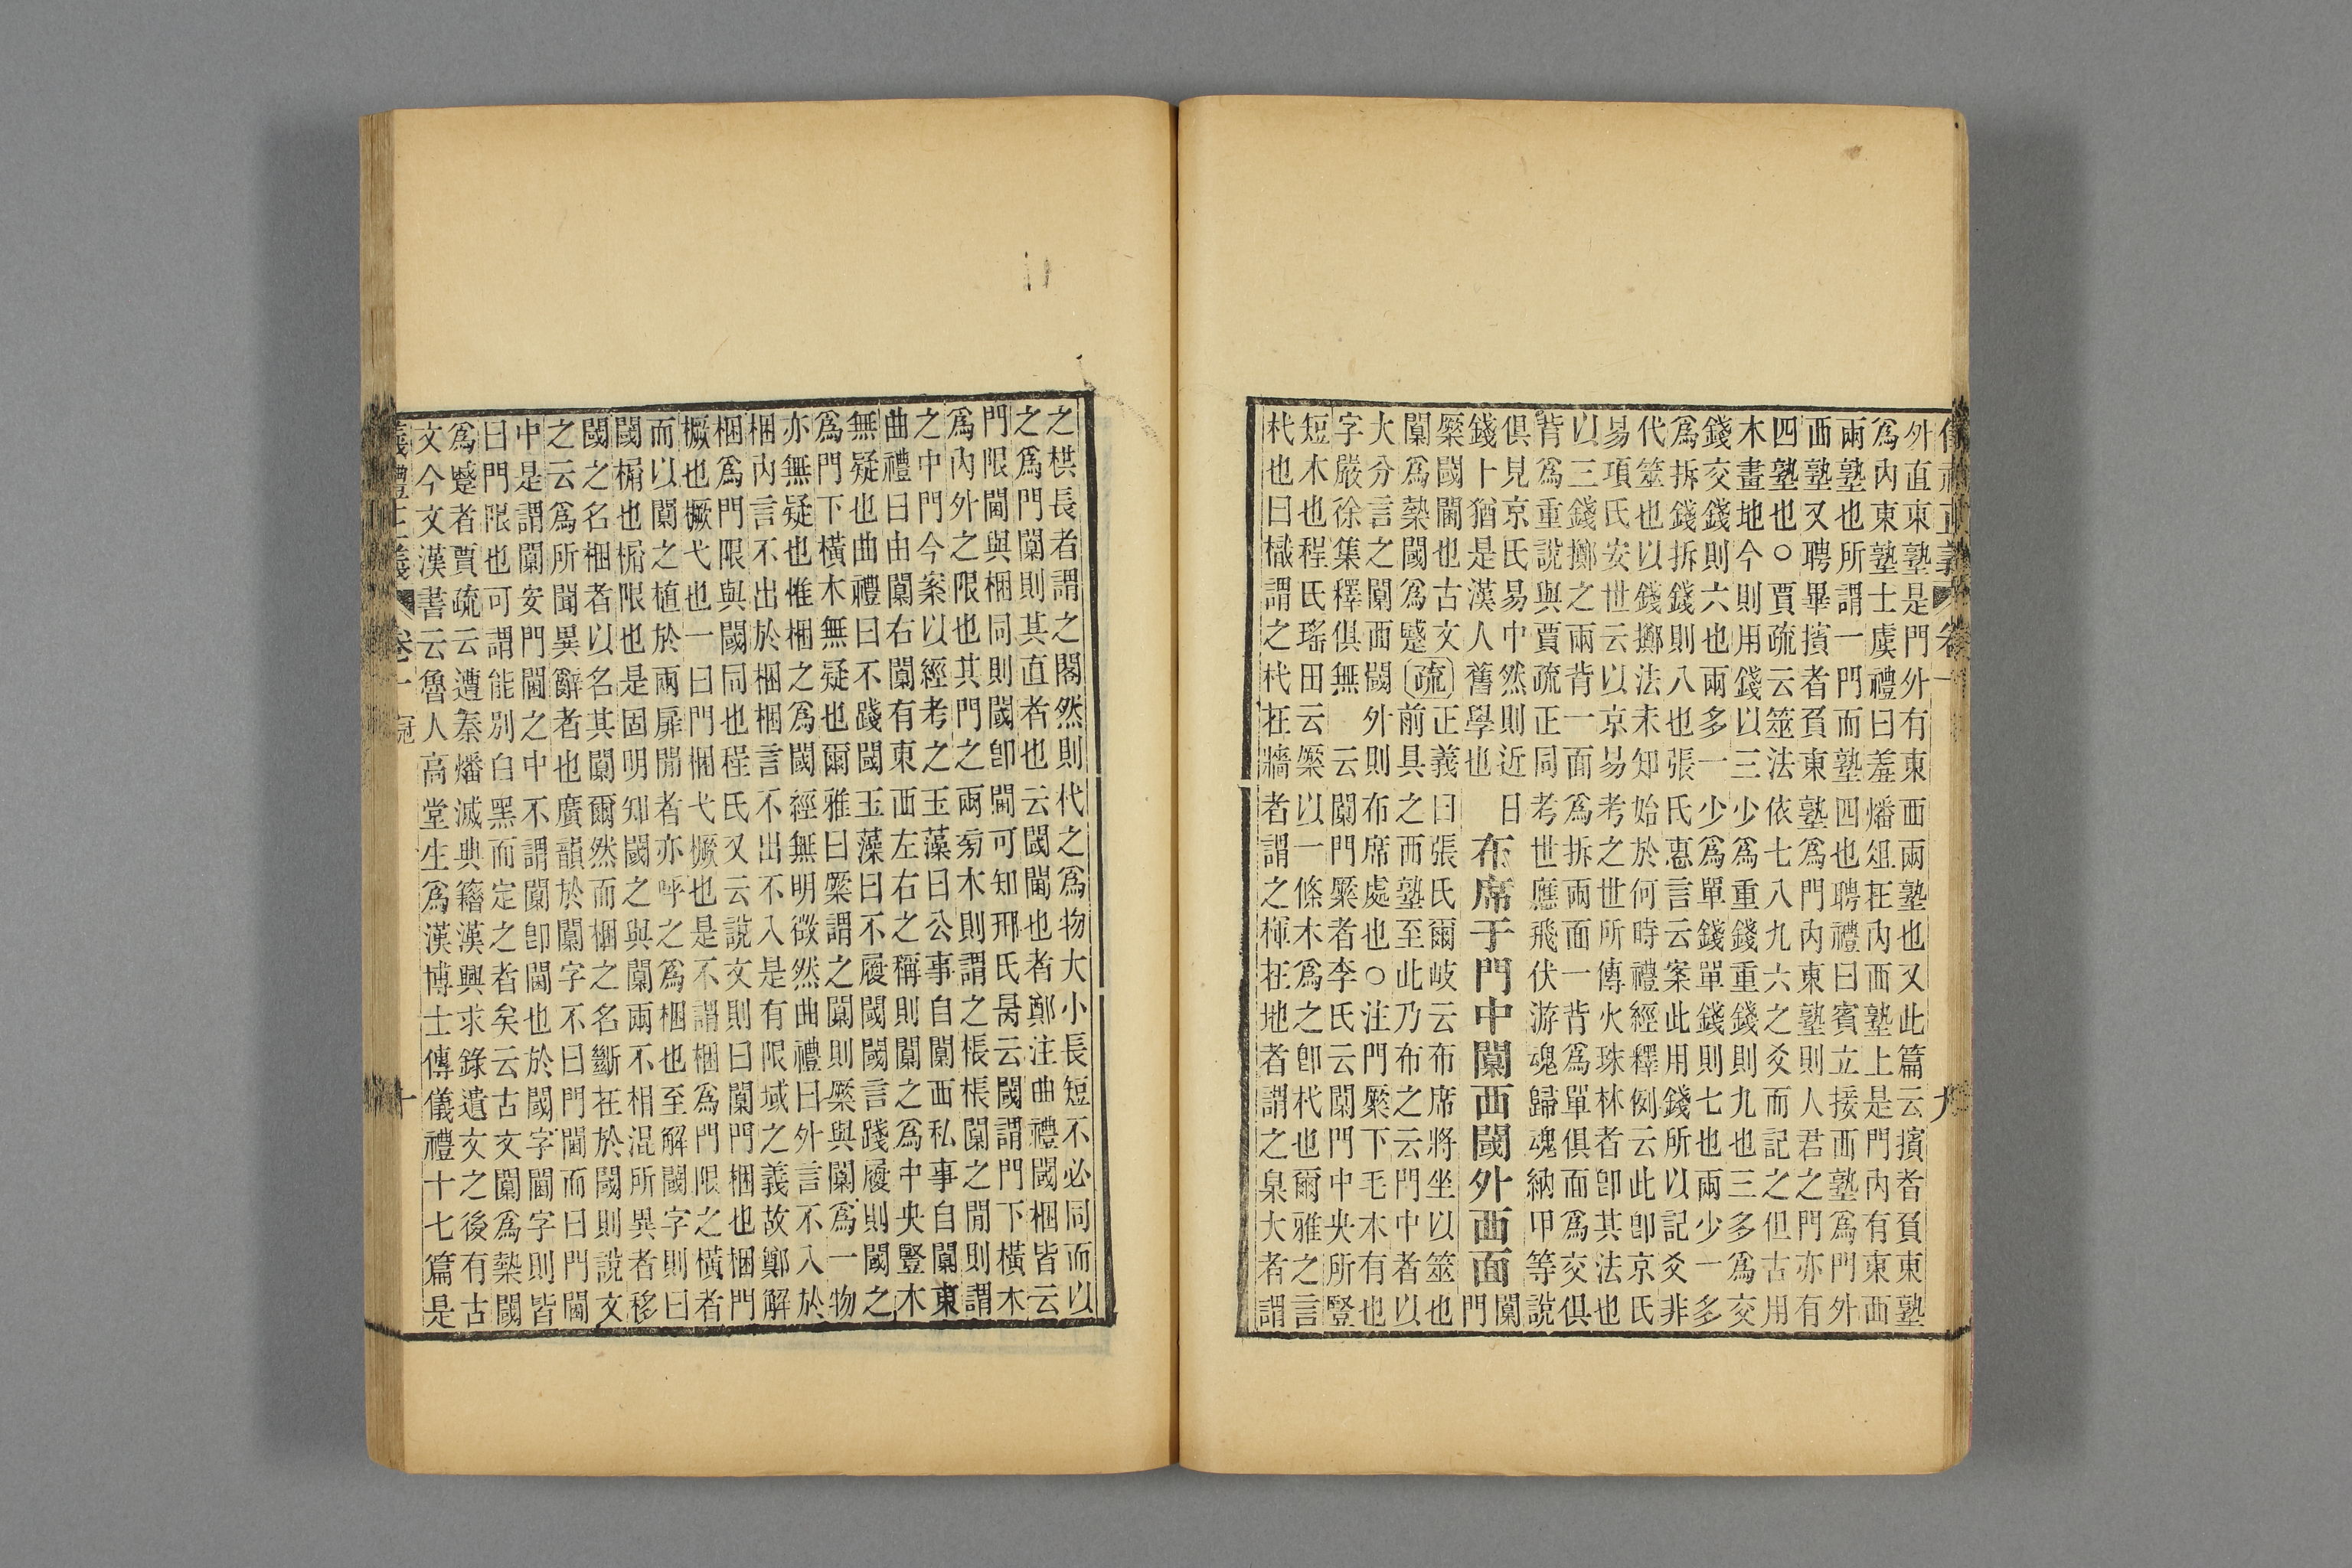 儀禮正義 卷一 九
外直東塾是門外有東西兩塾也又此篇云擯者負東塾
為內東塾士虞禮曰羞燔俎在內西塾上是門內有東西
兩塾也所謂一門而塾四也聘禮曰賓立接西塾為門外
西塾又聘畢擯者負東塾為門內東塾則人君之門亦有
四塾也○賈疏云筮法依七八九六之爻而記之但古用
木畫地今則用錢以三少為重錢重錢則九也三多為交
錢交錢則六也兩多一少為單錢單錢則七也兩少一多
為拆錢拆錢則八也張氏惠言云案此用錢所以記爻非
代筮也以錢擲法未知始於何時禮經釋例云此即京氏
易項氏安世云以京易考之世所傳火珠林者即其法也
以三錢擲之兩背一面為拆兩面一背為單俱面為交俱
背為重說與賈疏正同考世應飛伏游魂歸魂納甲等說
俱見京氏易中然則近日
錢卜猶是漢人舊學也
布席于門中闑西閾外西面
闑門
橜閾閫也古文
闑為槷閾為蹙
疏
正義曰張氏爾岐云布席將坐以筮也
前具之而塾至此乃布之云門中者以
大分言之闑西閾外則布席處也○注門橜下毛本有也
字嚴徐集釋俱無 云闑門橜者李氏云闑門中央所豎
短木也程氏瑤田云橜以一條木為之即杙也爾雅之言
杙也曰樴謂之杙在牆者謂之楎在地者謂之臬大者謂
之栱長者謂之閣然則代之為物大小長短不必同而以
之為門闑則其直者也云閾閫也者鄭注曲禮閾梱皆云
門限閫與梱同則閾即閫可知邢氏昺云閾謂門下橫木
為內外之限也其門之兩旁木則謂之棖棖闑之閒則謂
之中門今案以經考之玉藻曰公事自闑西私事自闑東
曲禮曰由闑右闑有東西左右之稱則闑之為中央豎木
無疑也曲禮曰不踐閾玉藻曰不履閾閾言踐履則閾之
為門下橫木無疑也爾雅曰橜謂之闑則橜與闑為一物
亦無疑也惟梱之為閾經無明徵然曲禮曰外言不入於
梱內言不出於梱梱言不出不入是有限域之義故鄭解
梱為門限與閾同也程氏又云說文則曰闑門梱也梱門
橛也橛弋也一曰門梱弋橛也是不謂梱為門限之橫者
而以闑之植於兩扉閒者亦呼之為梱也至解閾字則曰
閾榍也榍限也是固明知閾之與闑兩不相混所異者移
閾之名梱者以名其闑爾然而梱之名斷在於閾則說文
之云為所聞異辭者也廣韻於闑字不曰門閫而曰門閫
中是謂闑安門閫之中不謂闑即閫也於閾字閫字則皆
曰門限也可謂能別白黑而定之者矣云古文闑為槷閾
為蹙者賈疏云遭秦燔滅典籍漢興求錄遺文之後有古
文今文漢書云魯人高堂生為漢博士傳儀禮十七篇是
儀禮正義 卷一 冠 十